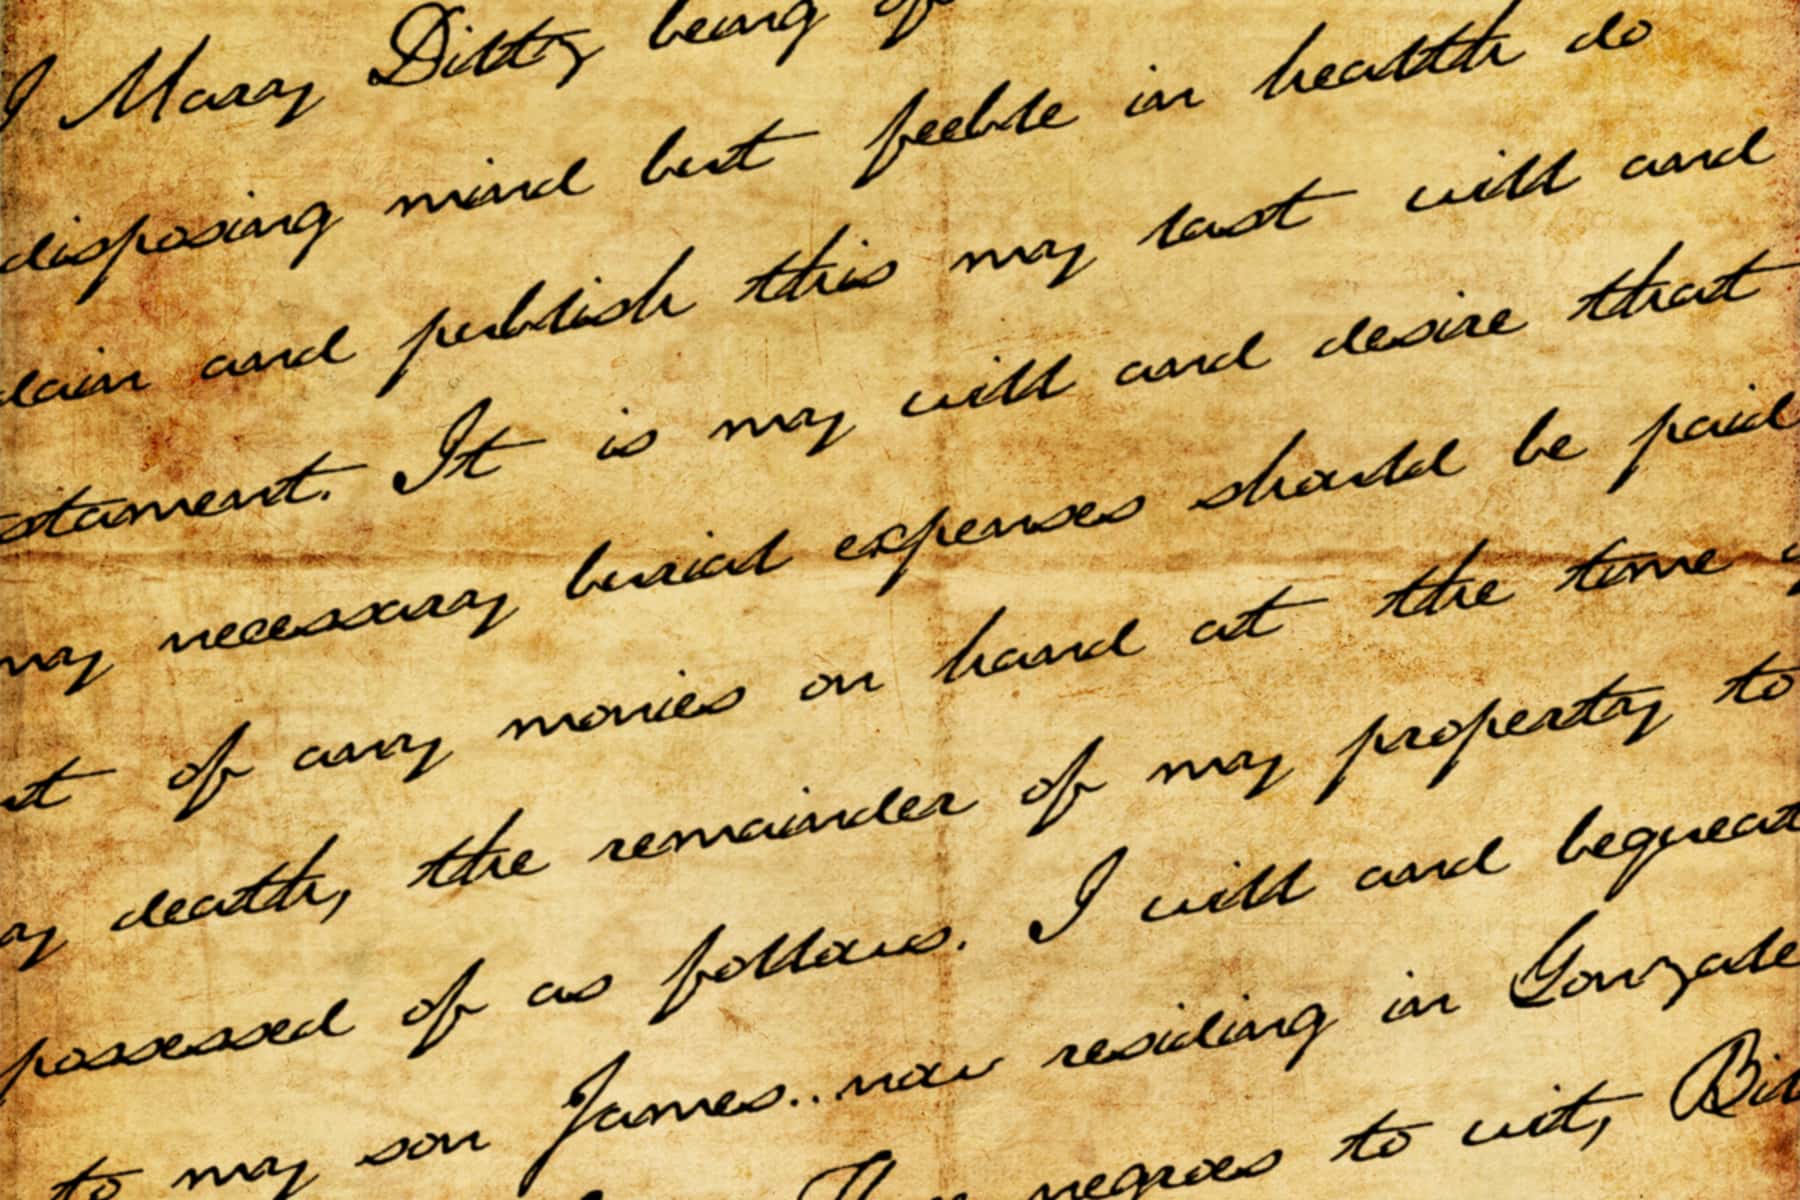 I Mary Ditty being of
disposing mind but feeble in health do
dain and publish this my last will and
stament. It is my will and desire that
my necessary burial expenses should be paid
t of any monies on hand at the time
y death, the remainder of my property to
possessed of as follows. I will and bequeat
to my son James..now residing in Gonzale
negroes to wit, Bid